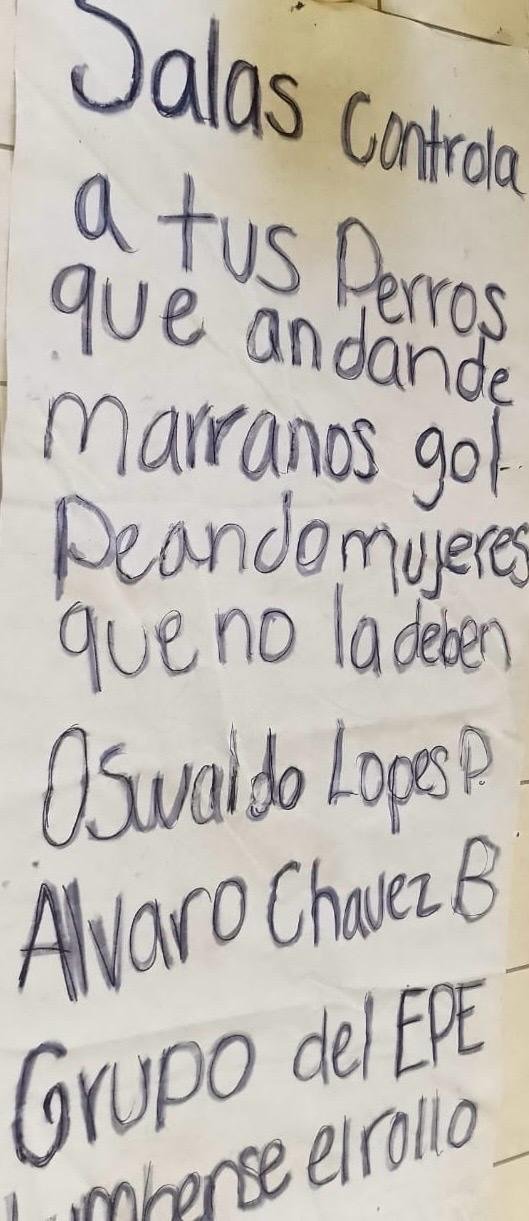 Salas controla
a tus Perros
que andande
marranos gol
Peando mujeres
que no la deben
Oswaldo Lopes P.
Alvaro Chavez B
Grupo del EPE
elrollo